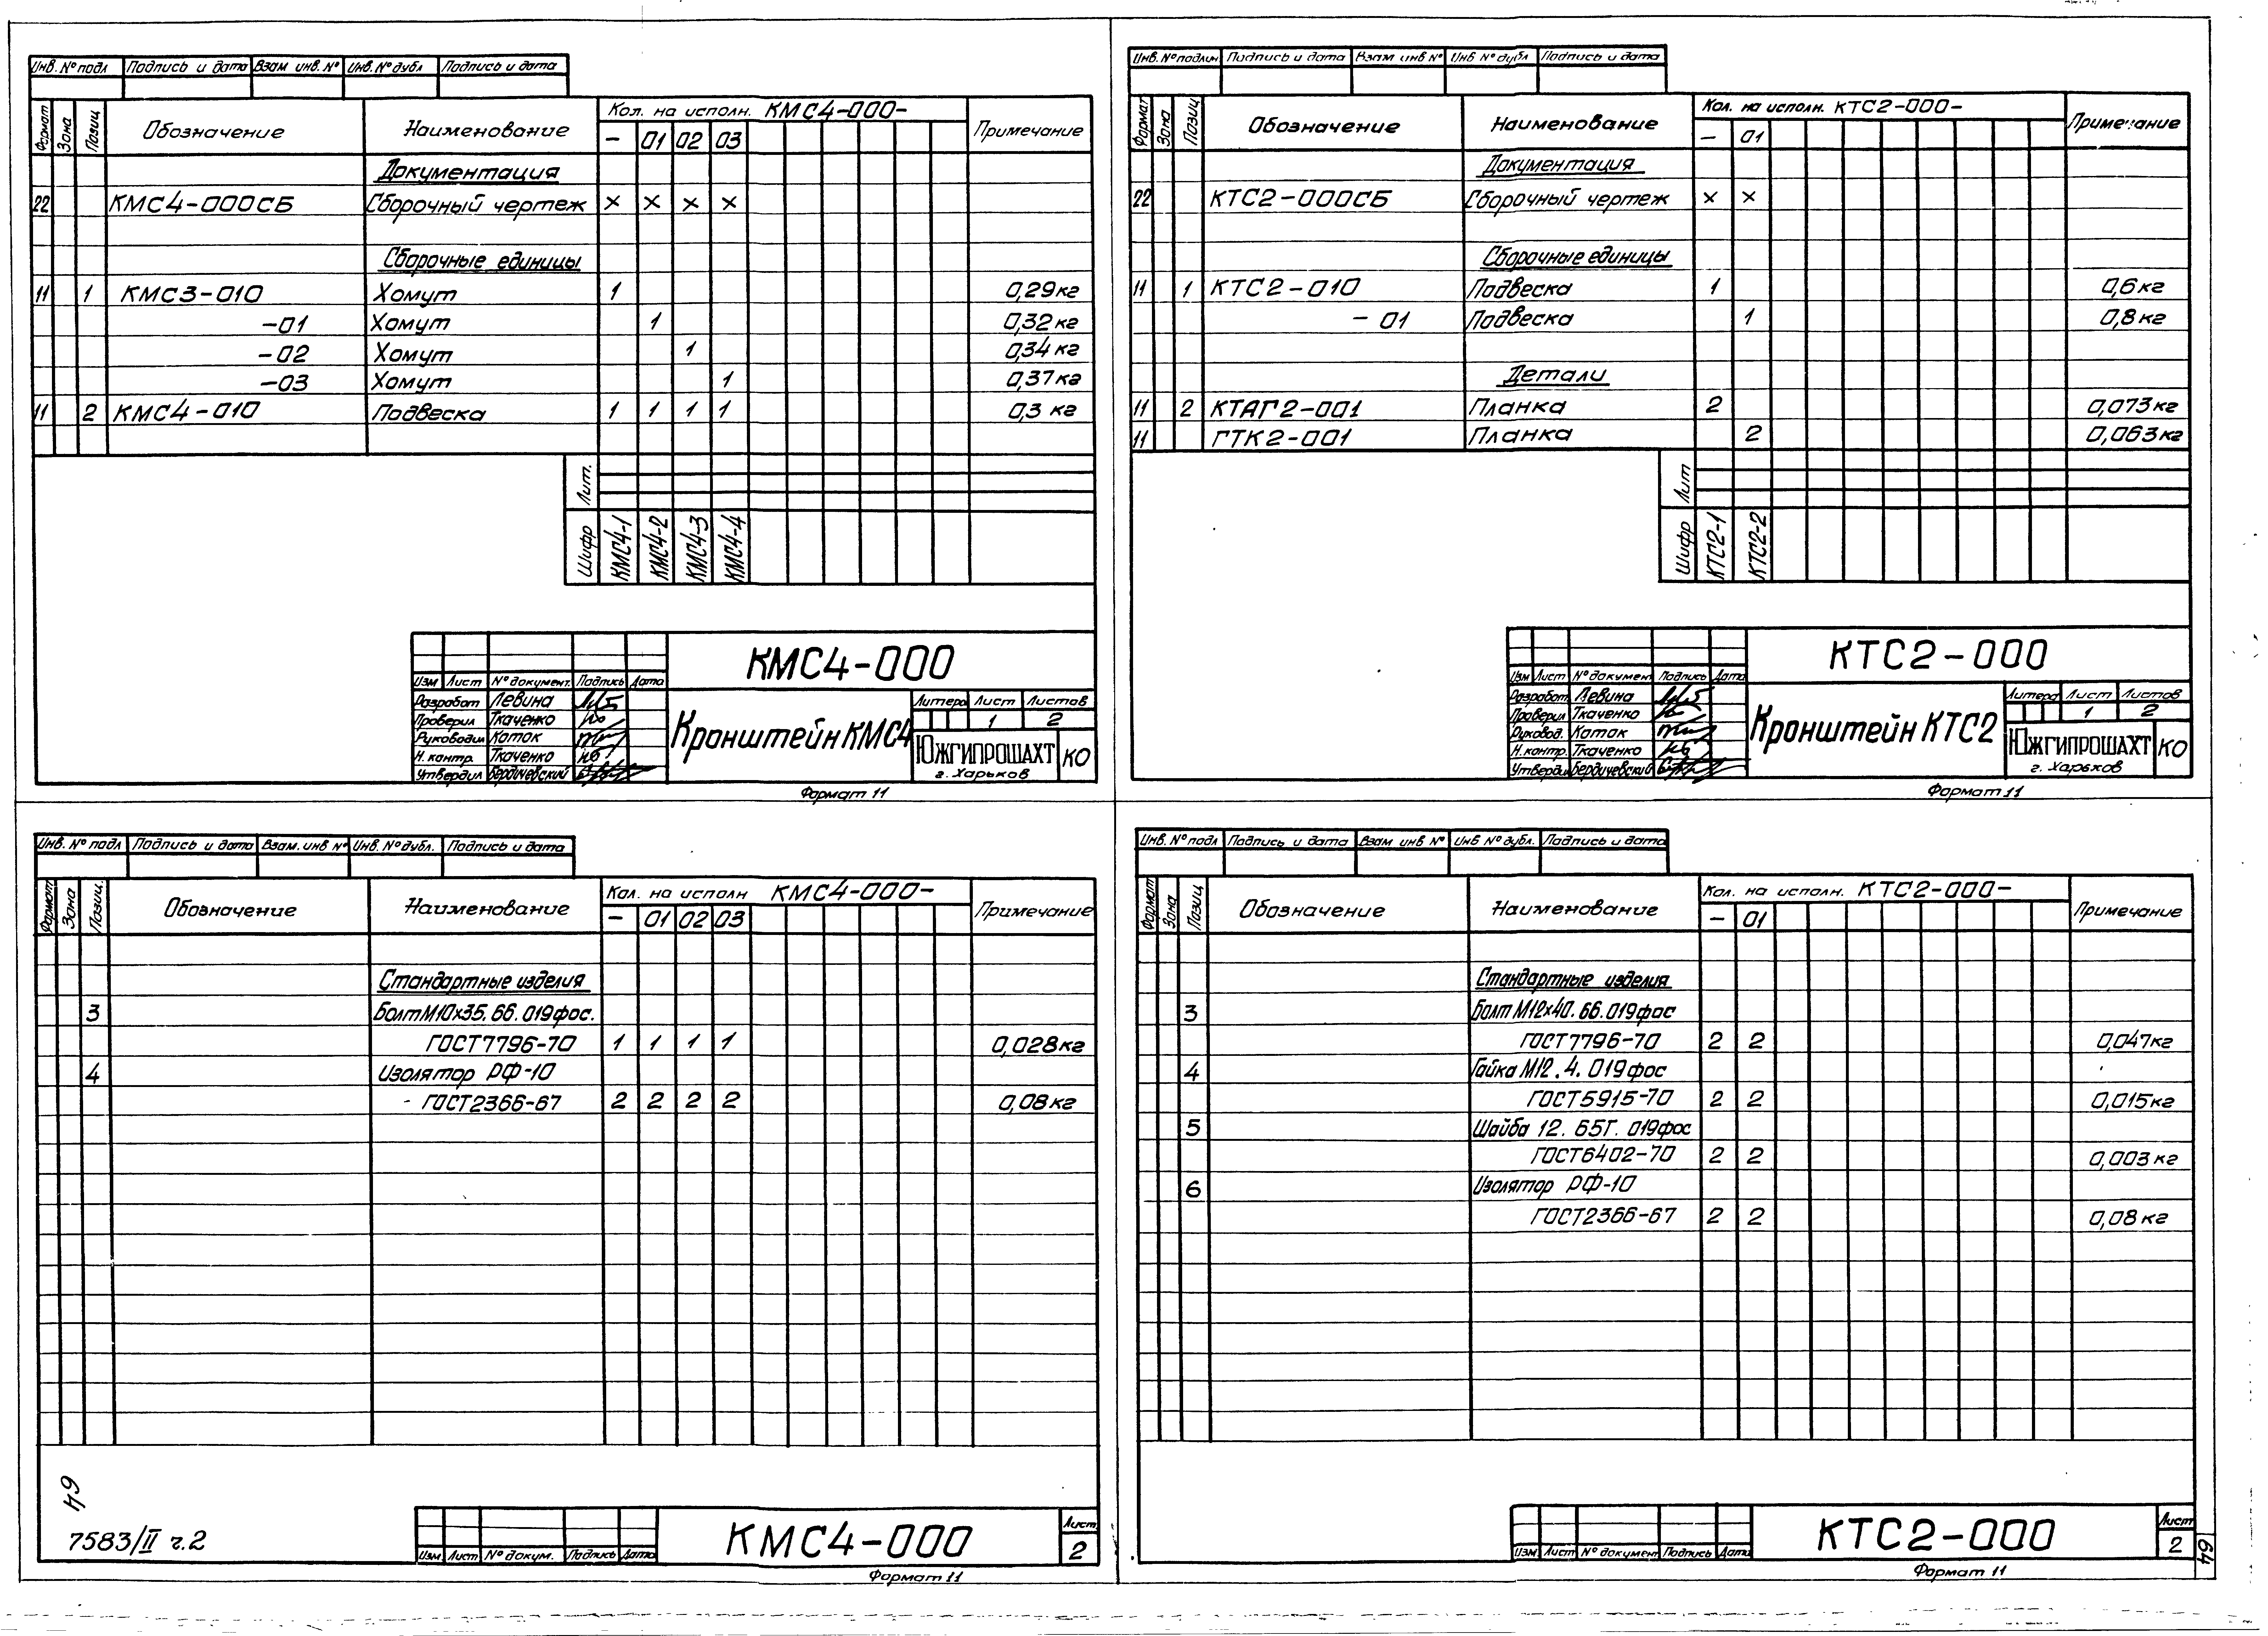 Инв. № подл Подпись и дата Взам инв. № Инв. № дубл Подпись и дата
Формат Зона Позиц Обозначение Наименование Кол. на исполн. КМС4-000- Примечание
- 01 02 03
Документация
22 КМС4-000СБ Сборочный чертеж × × × ×
Сборочные единицы
11 1 КМС3-010 Хомут 1 0,29кг
-01 Хомут 1 0,32кг
-02 Хомут 1 0,34кг
-03 Хомут 1 0,37кг
11 2 КМС4-010 Подвеска 1 1 1 1 0,3 кг
Лит.
Шифр КМС4-1 КМС4-2 КМС4-3 КМС4-4
КМС4-000
Изм Лист № документ. Подпись Дата
Разработ Левина
Проверил Ткаченко
Руководил Коток
Н. контр. Ткаченко
Утвердил Бердичевский
Кронштейн КМС4
Литера Лист Листов
1 2
ЮЖГИПРОШАХТ КО
г. Харьков
Формат 11
Инв. № подлин Подпись и дата Взам инв № Инв № дубл Подпись и дата
Формат Зона Позиц Обозначение Наименование Кол. на исполн. КТС2-000- Примечание
- 01
Документация
22 КТС2-000СБ Сборочный чертеж × ×
Сборочные единицы
11 1 КТС2-010 Подвеска 1 0,6кг
- 01 Подвеска 1 0,8кг
Детали
11 2 КТАГ2-001 Планка 2 0,073кг
11 ГТК2-001 Планка 2 0,063кг
Лит
Шифр КТС2-1 КТС2-2
КТС2-000
Изм Лист № документ Подпись Дата
Разработ Левина
Проверил Ткаченко
Руковод. Коток
Н. контр. Ткаченко
Утвердил Бердичевский
Кронштейн КТС2
Литера Лист Листов
1 2
ЮЖГИПРОШАХТ КО
г. Харьков
Формат 11
Инв. № подл Подпись и дата Взам. инв № Инв. № дубл. Подпись и дата
Формат Зона Позиц. Обозначение Наименование Кол. на исполн КМС4-000- Примечание
- 01 02 03
Стандартные изделия
3 Болт М10×35.66.019фос.
ГОСТ7796-70 1 1 1 1 0,028кг
4 Изолятор РФ-10
ГОСТ2366-67 2 2 2 2 0,08кг
64
7583/II ч.2
Изм Лист № докум. Подпись Дата
КМС4-000
Лист
2
Формат 11
Инв. № подл Подпись и дата Взам инв № Инв № дубл. Подпись и дата
Формат Зона Позиц Обозначение Наименование Кол. на исполн. КТС2-000- Примечание
- 01
Стандартные изделия
3 Болт М12×40.66.019фос
ГОСТ7796-70 2 2 0,047кг
4 Гайка М12.4.019фос
ГОСТ5915-70 2 2 0,015кг
5 Шайба 12.65Г.019фос
ГОСТ6402-70 2 2 0,003кг
6 Изолятор РФ-10
ГОСТ2366-67 2 2 0,08кг
Изм Лист № документ Подпись Дата
КТС2-000
Лист
2
64
Формат 11